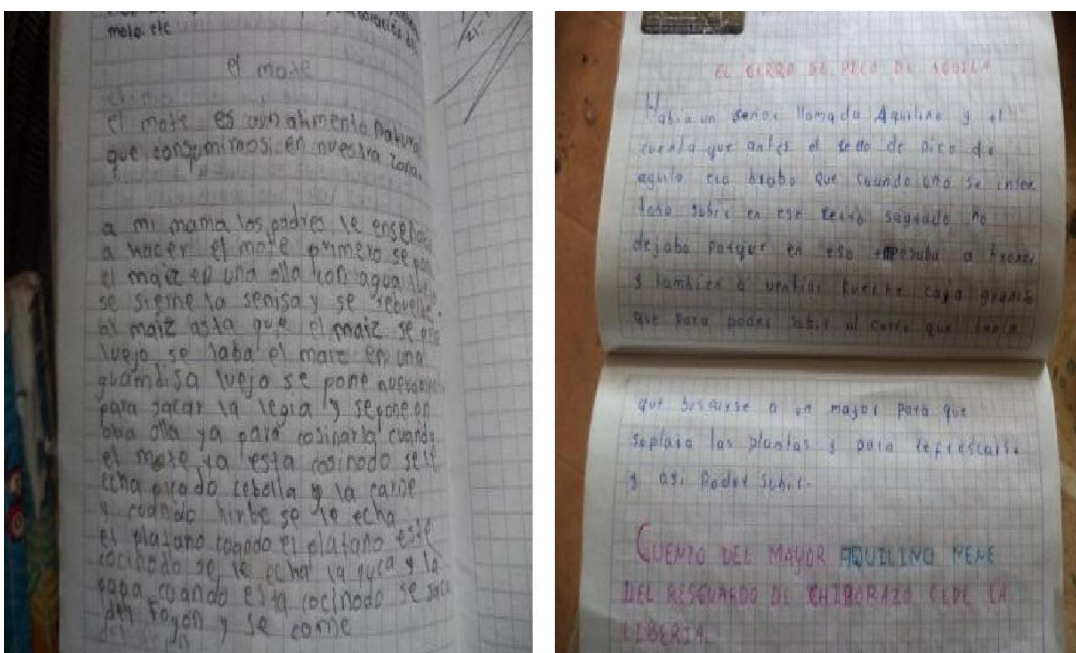 mote. etc
el mote
el mote es un alimento natural
que consumimos en nuestra zona.
a mi mama los padres le enseñaron
a hacer el mote primero se pone
el maiz en una olla con agua
se sierne la senisa y se rebuelbe
al maiz asta que el maiz se
luejo se laba el maiz en una
guambisa luejo se pone nuevamente
para sacar la legia y se pone en
otra olla ya para cosinarla cuando
el mote ya esta cosinado se le
echa picado cebolla y la carne
y cuando hirbe se le echa
el platano cuando el platano este
cocinado se le echa la yuca y la
papa cuando esta cocinado se saca
del fogon y se come
EL CERRO DE PICO DE AGUILA
Habia un señor llamado Aquilino y el
cuenta que antes el cerro de pico de
aguila era brabo que cuando uno se inten
taba subir en ese cerro sagrado no
dejaba porque en eso empesaba a tronar
y tambien a ventiar
que para poder subir al cerro que tenia
que buscarse a un mayor para que
soplara las plantas y para refrescarse
y asi poder subir.
CUENTO DEL MAYOR AQUILINO PENE
DEL RESGUARDO DE CHIBORAZO CEDE LA
LIBERIA